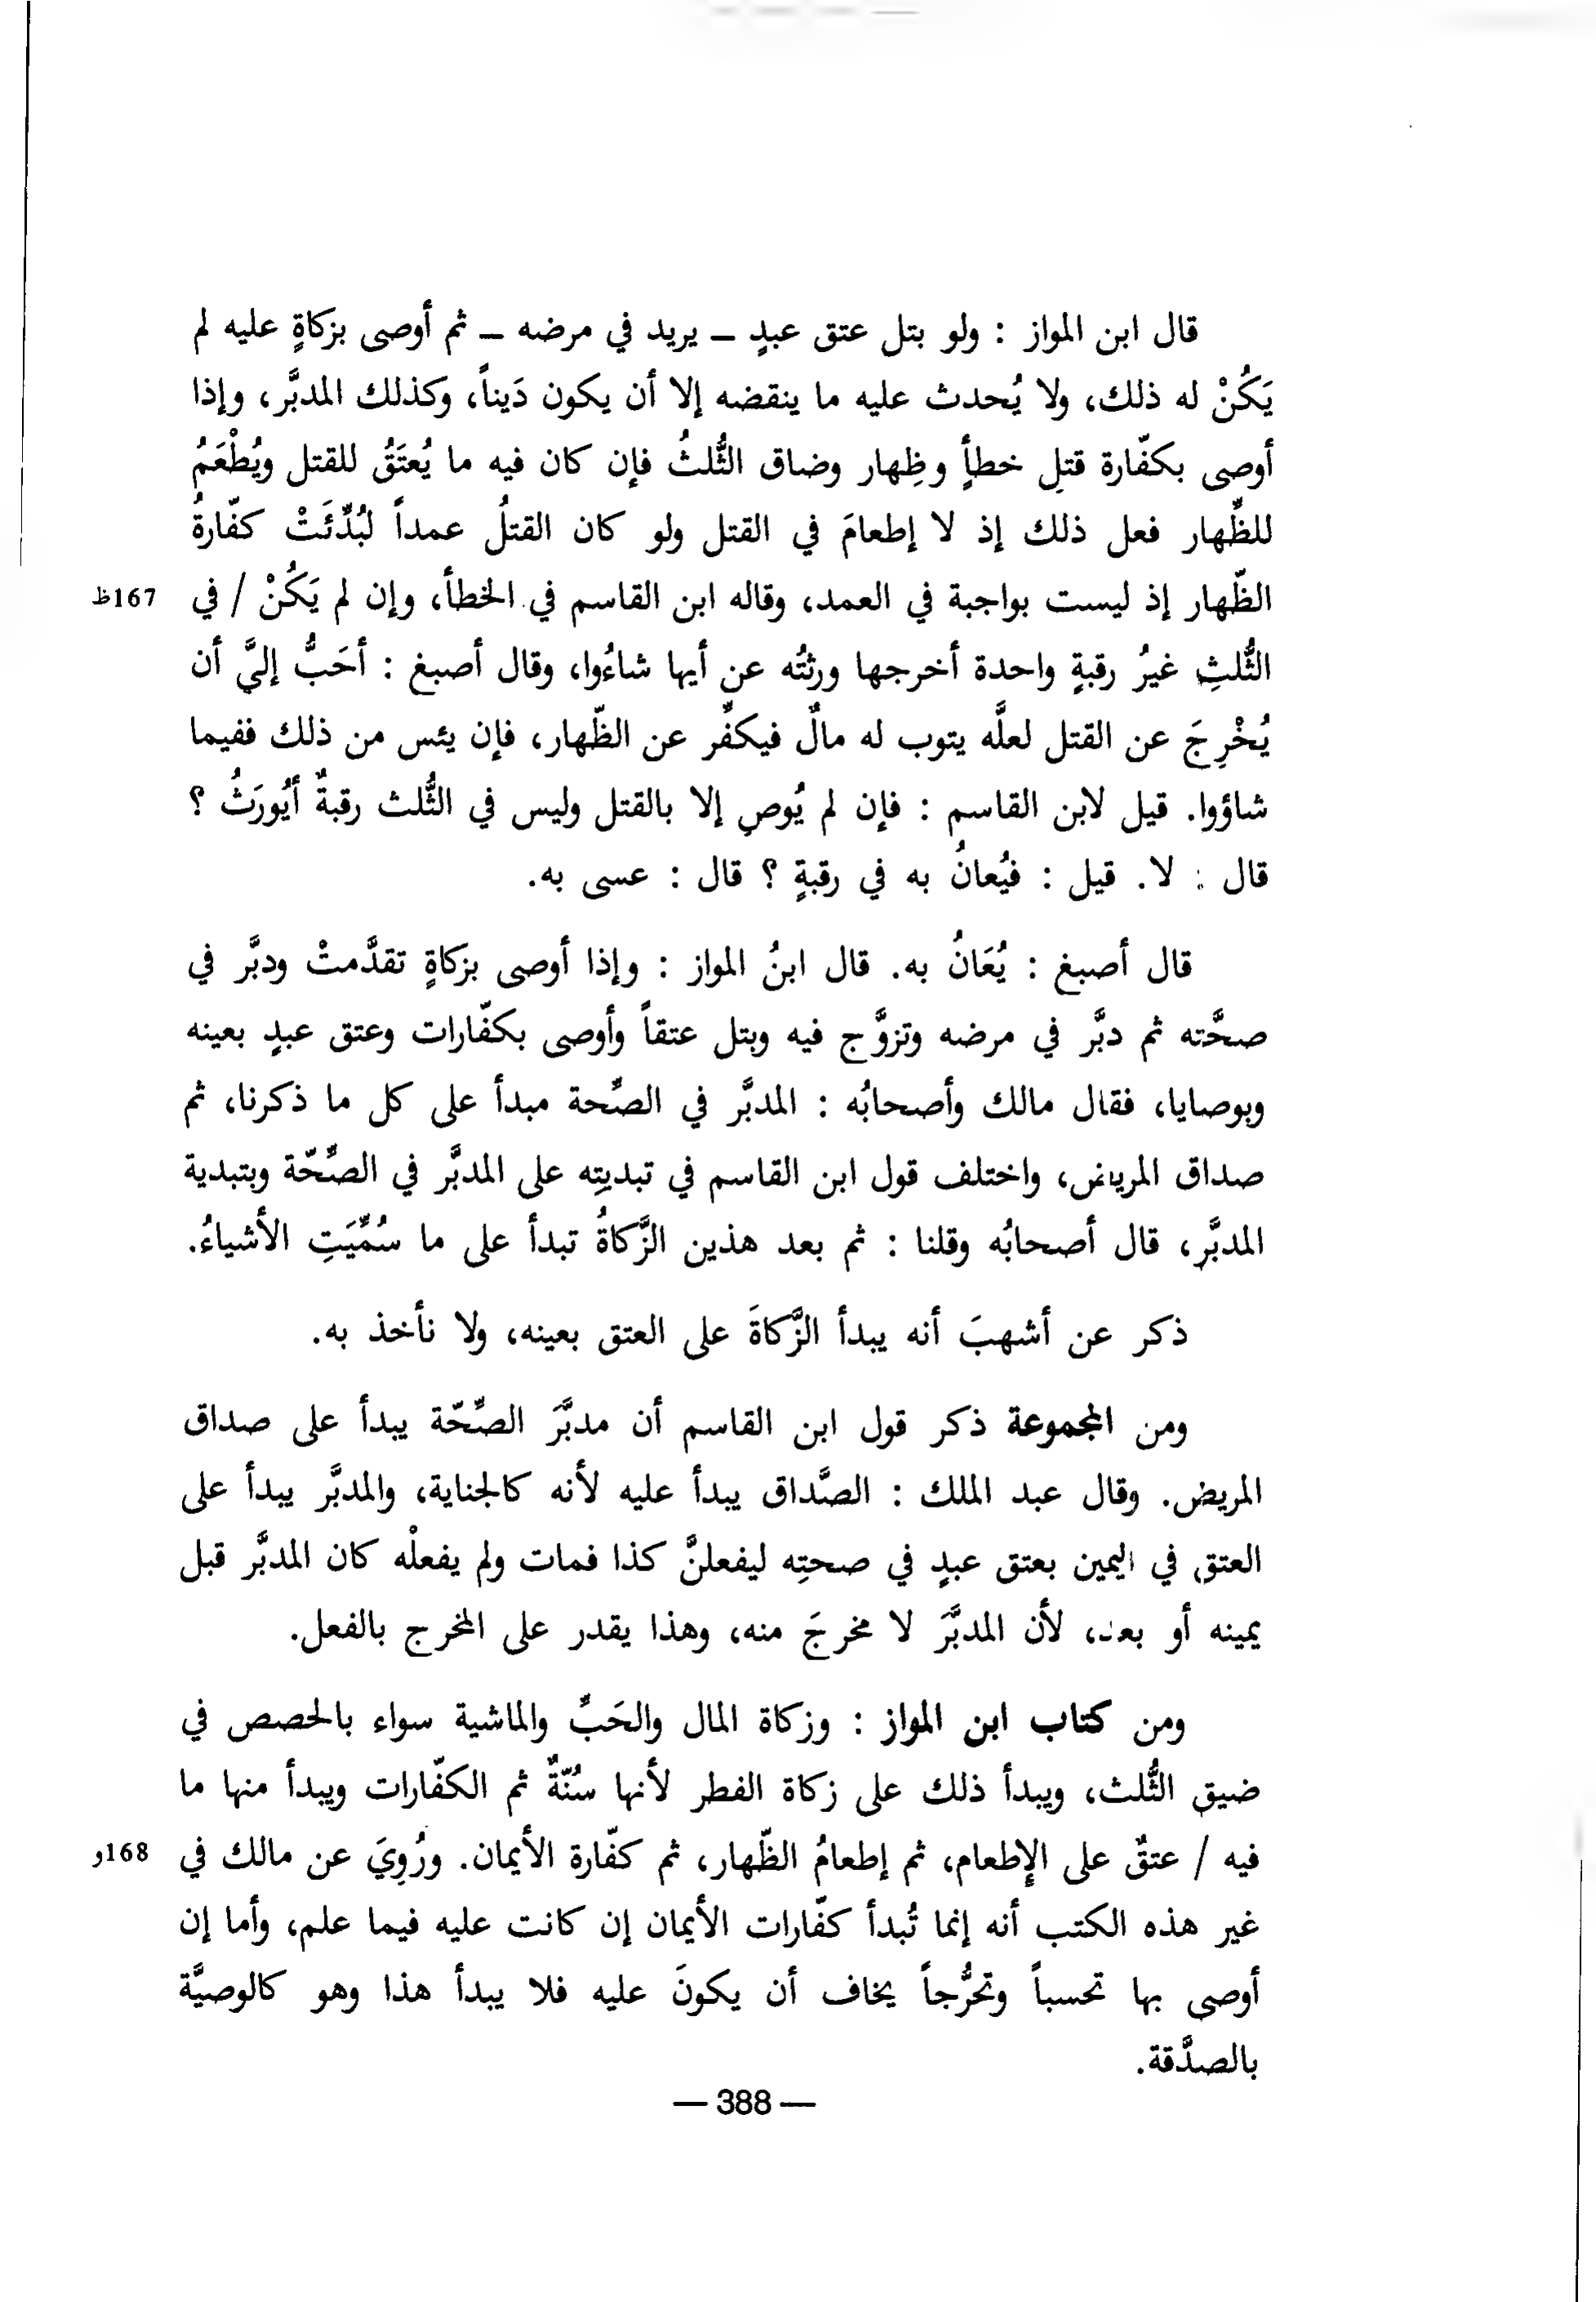 قال ابن المواز : ولو بتل عتق عبدٍ – يريد في مرضه – ثم أوصى بزكاةٍ عليه لم
يَكُنْ له ذلك، ولا يُحدث عليه ما ينقضه إلا أن يكون دَيناً، وكذلك المدبَّر، وإذا
أوصى بكفّارة قتلِ خطأٍ وظِهار وضاق الثُّلثُ فإن كان فيه ما يُعتَقُ للقتل ويُطْعَمُ
للظِّهار فعل ذلك إذ لا إطعامَ في القتل ولو كان القتلُ عمداً لبُدِّئَتْ كفّارةُ
الظِّهار إذ ليست بواجبة في العمد، وقاله ابن القاسم في الخطأ، وإن لم يَكُنْ / في 167ظ
الثُّلثِ غيرُ رقبةٍ واحدة أخرجها ورثتُه عن أيها شاءُوا، وقال أصبغ : أحَبُّ إليَّ أن
يُخْرِجَ عن القتل لعلَّه يتوب له مالٌ فيكفِّر عن الظّهار، فإن يئس من ذلك ففيما
شاؤوا. قيل لابن القاسم : فإن لم يُوصِ إلا بالقتل وليس في الثُّلث رقبةٌ أيُورَثُ ؟
قال : لا. قيل : فيُعانُ به في رقبةٍ ؟ قال : عسى به.
قال أصبغ : يُعَانُ به. قال ابنُ المواز : وإذا أوصى بزكاةٍ تقدَّمتْ ودبَّر في
صحَّته ثم دبَّر في مرضه وتزوَّج فيه وبتل عتقاً وأوصى بكفّارات وعتق عبدٍ بعينه
وبوصايا، فقال مالك وأصحابُه : المدبَّر في الصِّحة مبدأ على كل ما ذكرنا، ثم
صداق المريض، واختلف قول ابن القاسم في تبديتِه على المدبَّر في الصِّحّة وبتبدية
المدبَّر، قال أصحابُه وقلنا : ثم بعد هذين الزَّكاةُ تبدأ على ما سُمِّيَتِ الأشياءُ.
ذكر عن أشهبَ أنه يبدأ الزَّكاةَ على العتق بعينه، ولا نأخذ به.
ومن المجموعة ذكر قول ابن القاسم أن مدبَّرَ الصِّحّة يبدأ على صداق
المريض. وقال عبد الملك : الصَّداق يبدأ عليه لأنه كالجناية، والمدبَّر يبدأ على
العتق في اليمين بعتق عبدٍ في صحتِه ليفعلنَّ كذا فمات ولم يفعلْه كان المدبَّر قبل
يمينه أو بعد، لأن المدبَّرَ لا مخرجَ منه، وهذا يقدر على المخرج بالفعل.
ومن كتاب ابن المواز : وزكاة المال والحَبِّ والماشية سواء بالحصص في
ضيق الثُّلث، ويبدأ ذلك على زكاة الفطر لأنها سُنّةٌ ثم الكفّارات ويبدأ منها ما
فيه / عتقٌ على الإطعام، ثم إطعامُ الظّهار، ثم كفّارة الأيمان. ورُوِيَ عن مالك في 168و
غير هذه الكتب أنه إنما تُبدأ كفّارات الأيمان إن كانت عليه فيما علم، وأما إن
أوصى بها تحسباً وتحرُّجاً يخاف أن يكونَ عليه فلا يبدأ هذا وهو كالوصيَّة
بالصدَّقة.
— 388 —